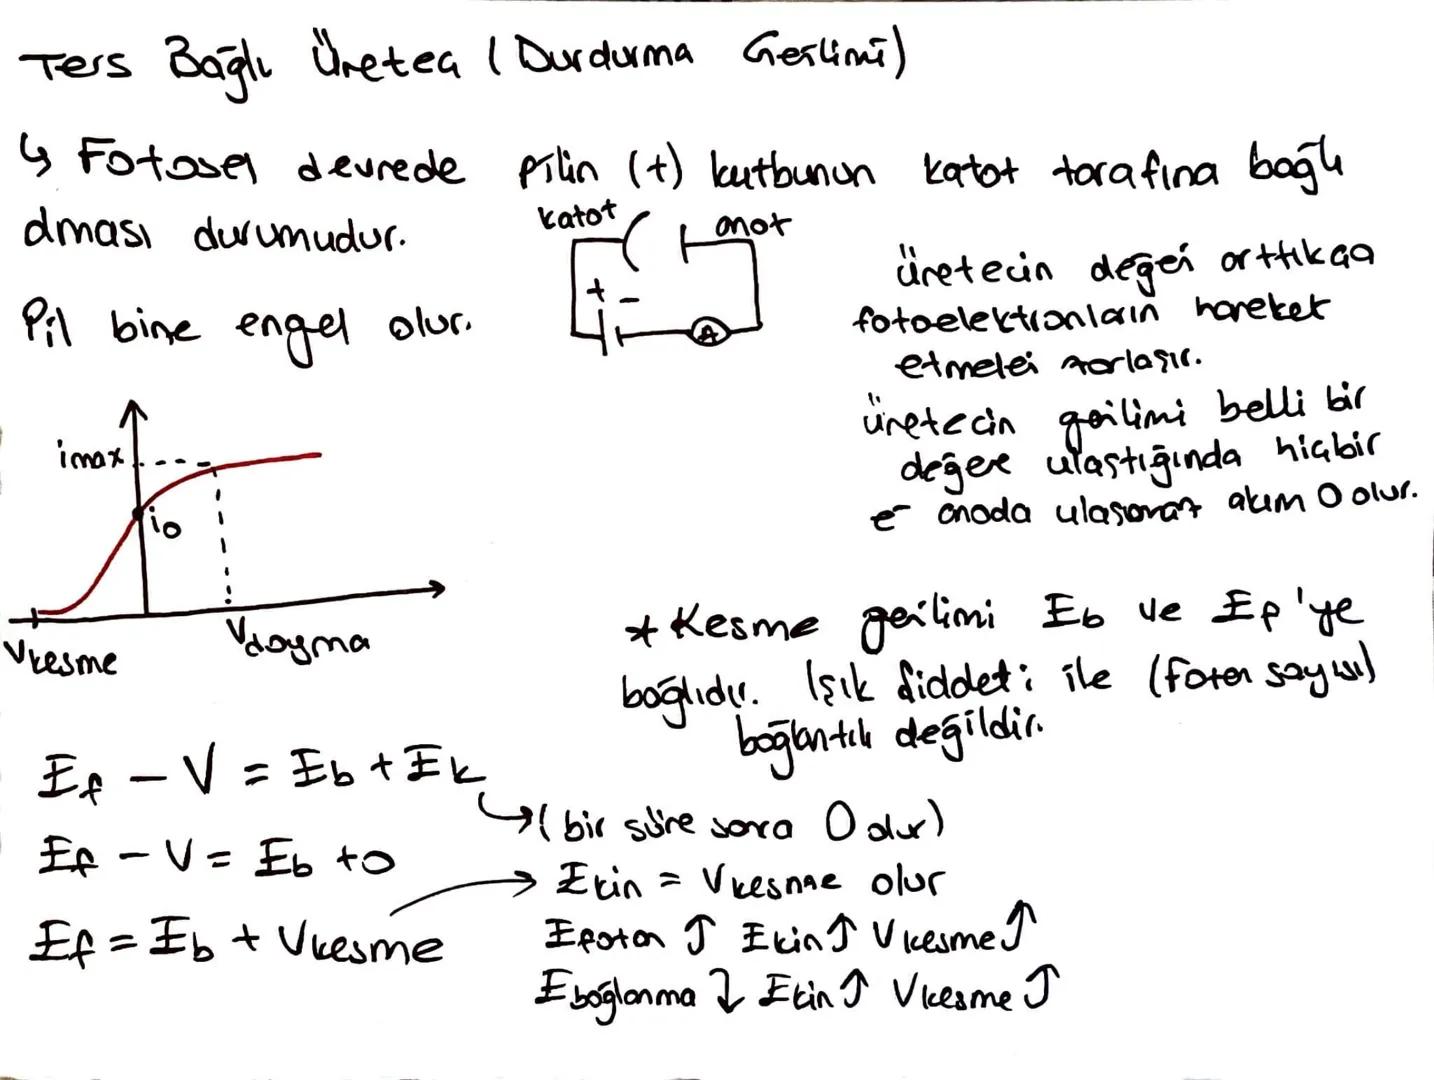 Ters Bağlı Üreteç (Durdurma Gerilimi)
↳ Fotosel devrede pilin (+) kutbunun katot tarafına bağlı
olması durumudur.
katot
anot
+ -
A
Pil bize engel olur.
üretecin değeri arttıkça
fotoelektronların hareket
etmeleri zorlaşır.
üretecin gerilimi belli bir
değere ulaştığında hiçbir
e⁻ anoda ulaşamaz akım 0 olur.
imax
i₀
Vkesme
Vdoyma
* Kesme gerilimi Eb ve Ef'ye
bağlıdır. Işık şiddeti ile (foton sayısı)
bağlantılı değildir.
Ef - V = Eb + Ek
→ (bir süre sonra 0 olur)
Ef - V = Eb + 0
→ Ekin = Vkesme olur
Ef = Eb + Vkesme
Efoton ↑ Ekin ↑ Vkesme ↑
Ebağlanma ↓ Ekin ↑ Vkesme ↑